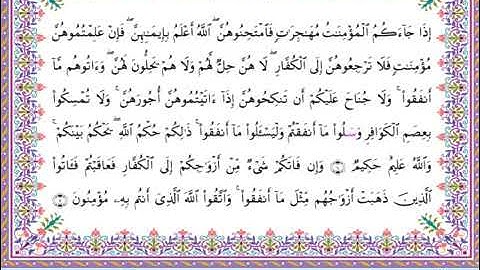 إِذَا جَآءَكُمُ ٱلْمُؤْمِنَـٰتُ مُهَـٰجِرَٰتٍ فَٱمْتَحِنُوهُنَّ ۖ ٱللَّهُ أَعْلَمُ بِإِيمَـٰنِهِنَّ ۖ فَإِنْ عَلِمْتُمُوهُنَّ
مُؤْمِنَـٰتٍ فَلَا تَرْجِعُوهُنَّ إِلَى ٱلْكُفَّارِ ۖ لَا هُنَّ حِلٌّ لَّهُمْ وَلَا هُمْ يَحِلُّونَ لَهُنَّ ۖ وَءَاتُوهُم مَّآ
أَنفَقُوا۟ ۚ وَلَا جُنَاحَ عَلَيْكُمْ أَن تَنكِحُوهُنَّ إِذَآ ءَاتَيْتُمُوهُنَّ أُجُورَهُنَّ ۚ وَلَا تُمْسِكُوا۟
بِعِصَمِ ٱلْكَوَافِرِ وَسْـَٔلُوا۟ مَآ أَنفَقْتُمْ وَلْيَسْـَٔلُوا۟ مَآ أَنفَقُوا۟ ۚ ذَٰلِكُمْ حُكْمُ ٱللَّهِ ۖ يَحْكُمُ بَيْنَكُمْ ۚ
وَٱللَّهُ عَلِيمٌ حَكِيمٌ ۝ وَإِن فَاتَكُمْ شَىْءٌ مِّنْ أَزْوَٰجِكُمْ إِلَى ٱلْكُفَّارِ فَعَاقَبْتُمْ فَـَٔاتُوا۟
ٱلَّذِينَ ذَهَبَتْ أَزْوَٰجُهُم مِّثْلَ مَآ أَنفَقُوا۟ ۚ وَٱتَّقُوا۟ ٱللَّهَ ٱلَّذِىٓ أَنتُم بِهِۦ مُؤْمِنُونَ ۝